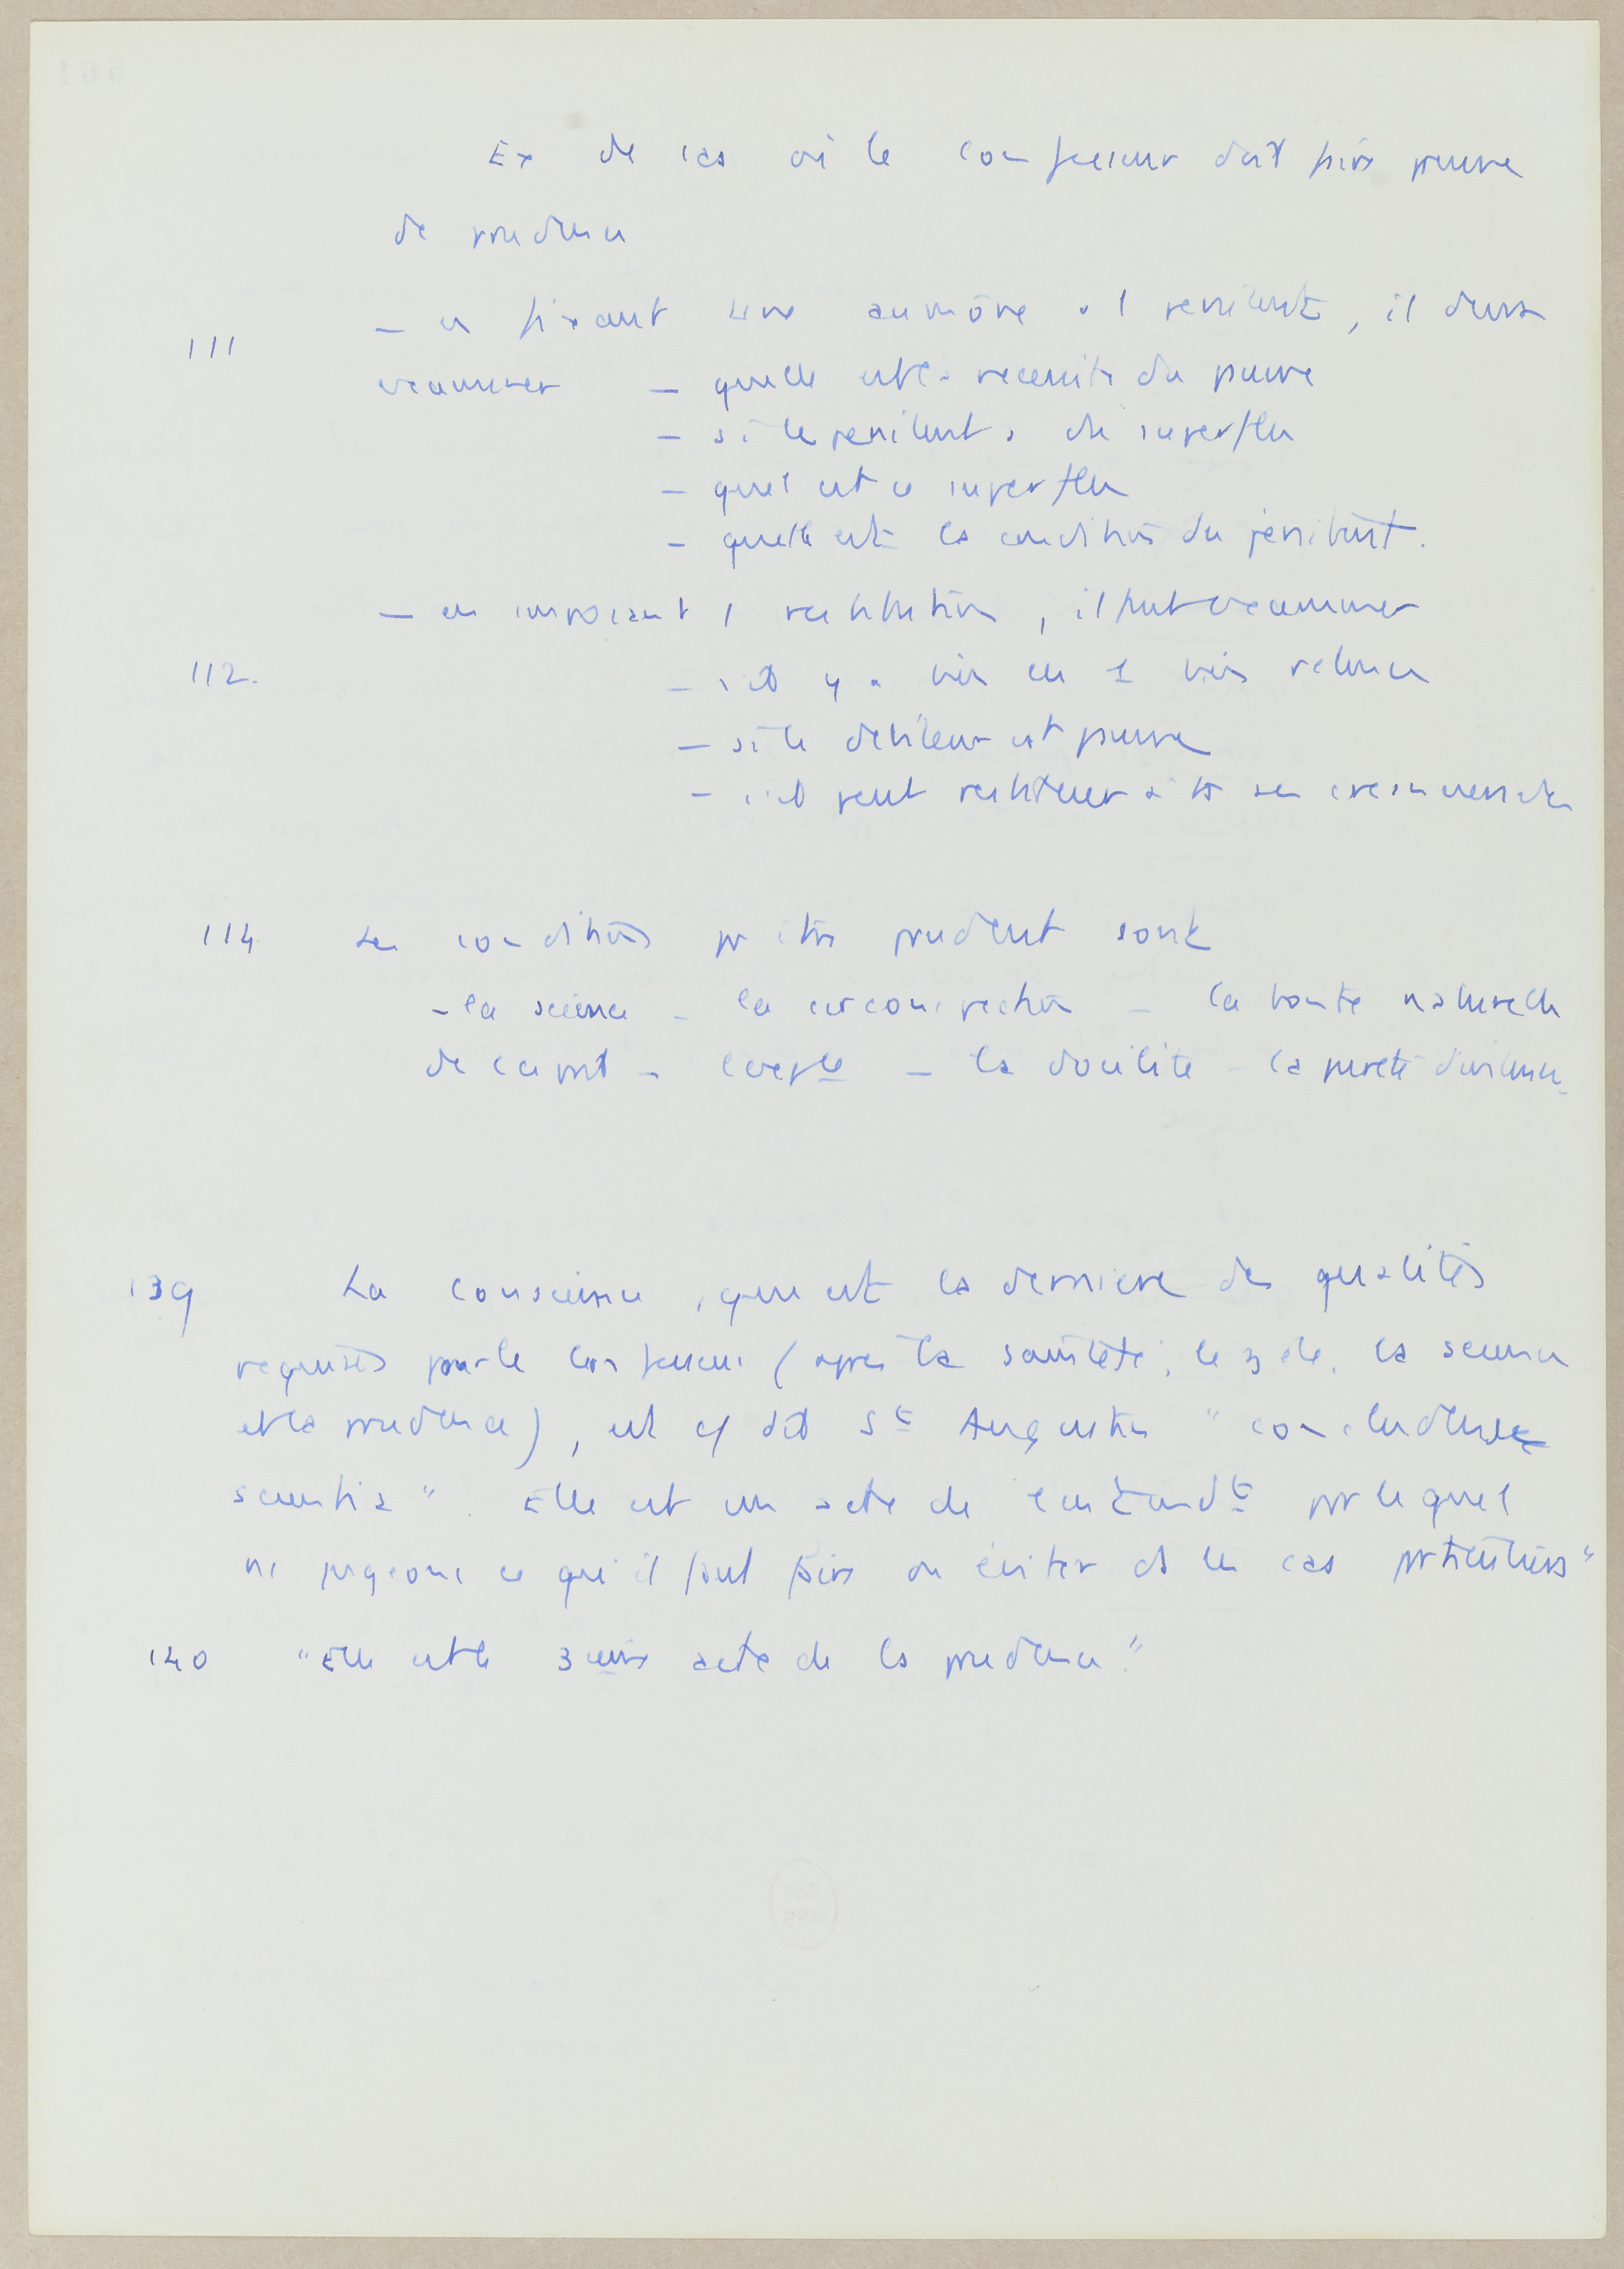 Ex de cas où le confesseur doit faire preuve
de prudence
111 — en fixant une aumône à 1 pénitent, il devra
examiner — quelle est la nécessité du pauvre
— si le pénitent a du superflu
— quel est ce superflu
— quelle est la condition du pénitent.
— en imposant 1 restitution, il faut examiner
112. — s'il y a bien eu 1
— si le débiteur est pauvre
— s'il peut restituer à ts ses
114 Les conditions pr être prudent sont
- la science - la circonspection - la bonté naturelle
de l'esprit - l'expce - la docilité - la pureté d'intention
139 La conscience, qui est la dernière des qualités
requises pour le confesseur (après la sainteté, le zèle, la science
et la prudence), est cf dit St Augustin "concludens
scientia". Elle est un acte de l'entendt par lequel
ns jugeons ce qu'il faut faire ou éviter ds les cas particuliers"
140 "Elle est le 3eme acte de la prudence."